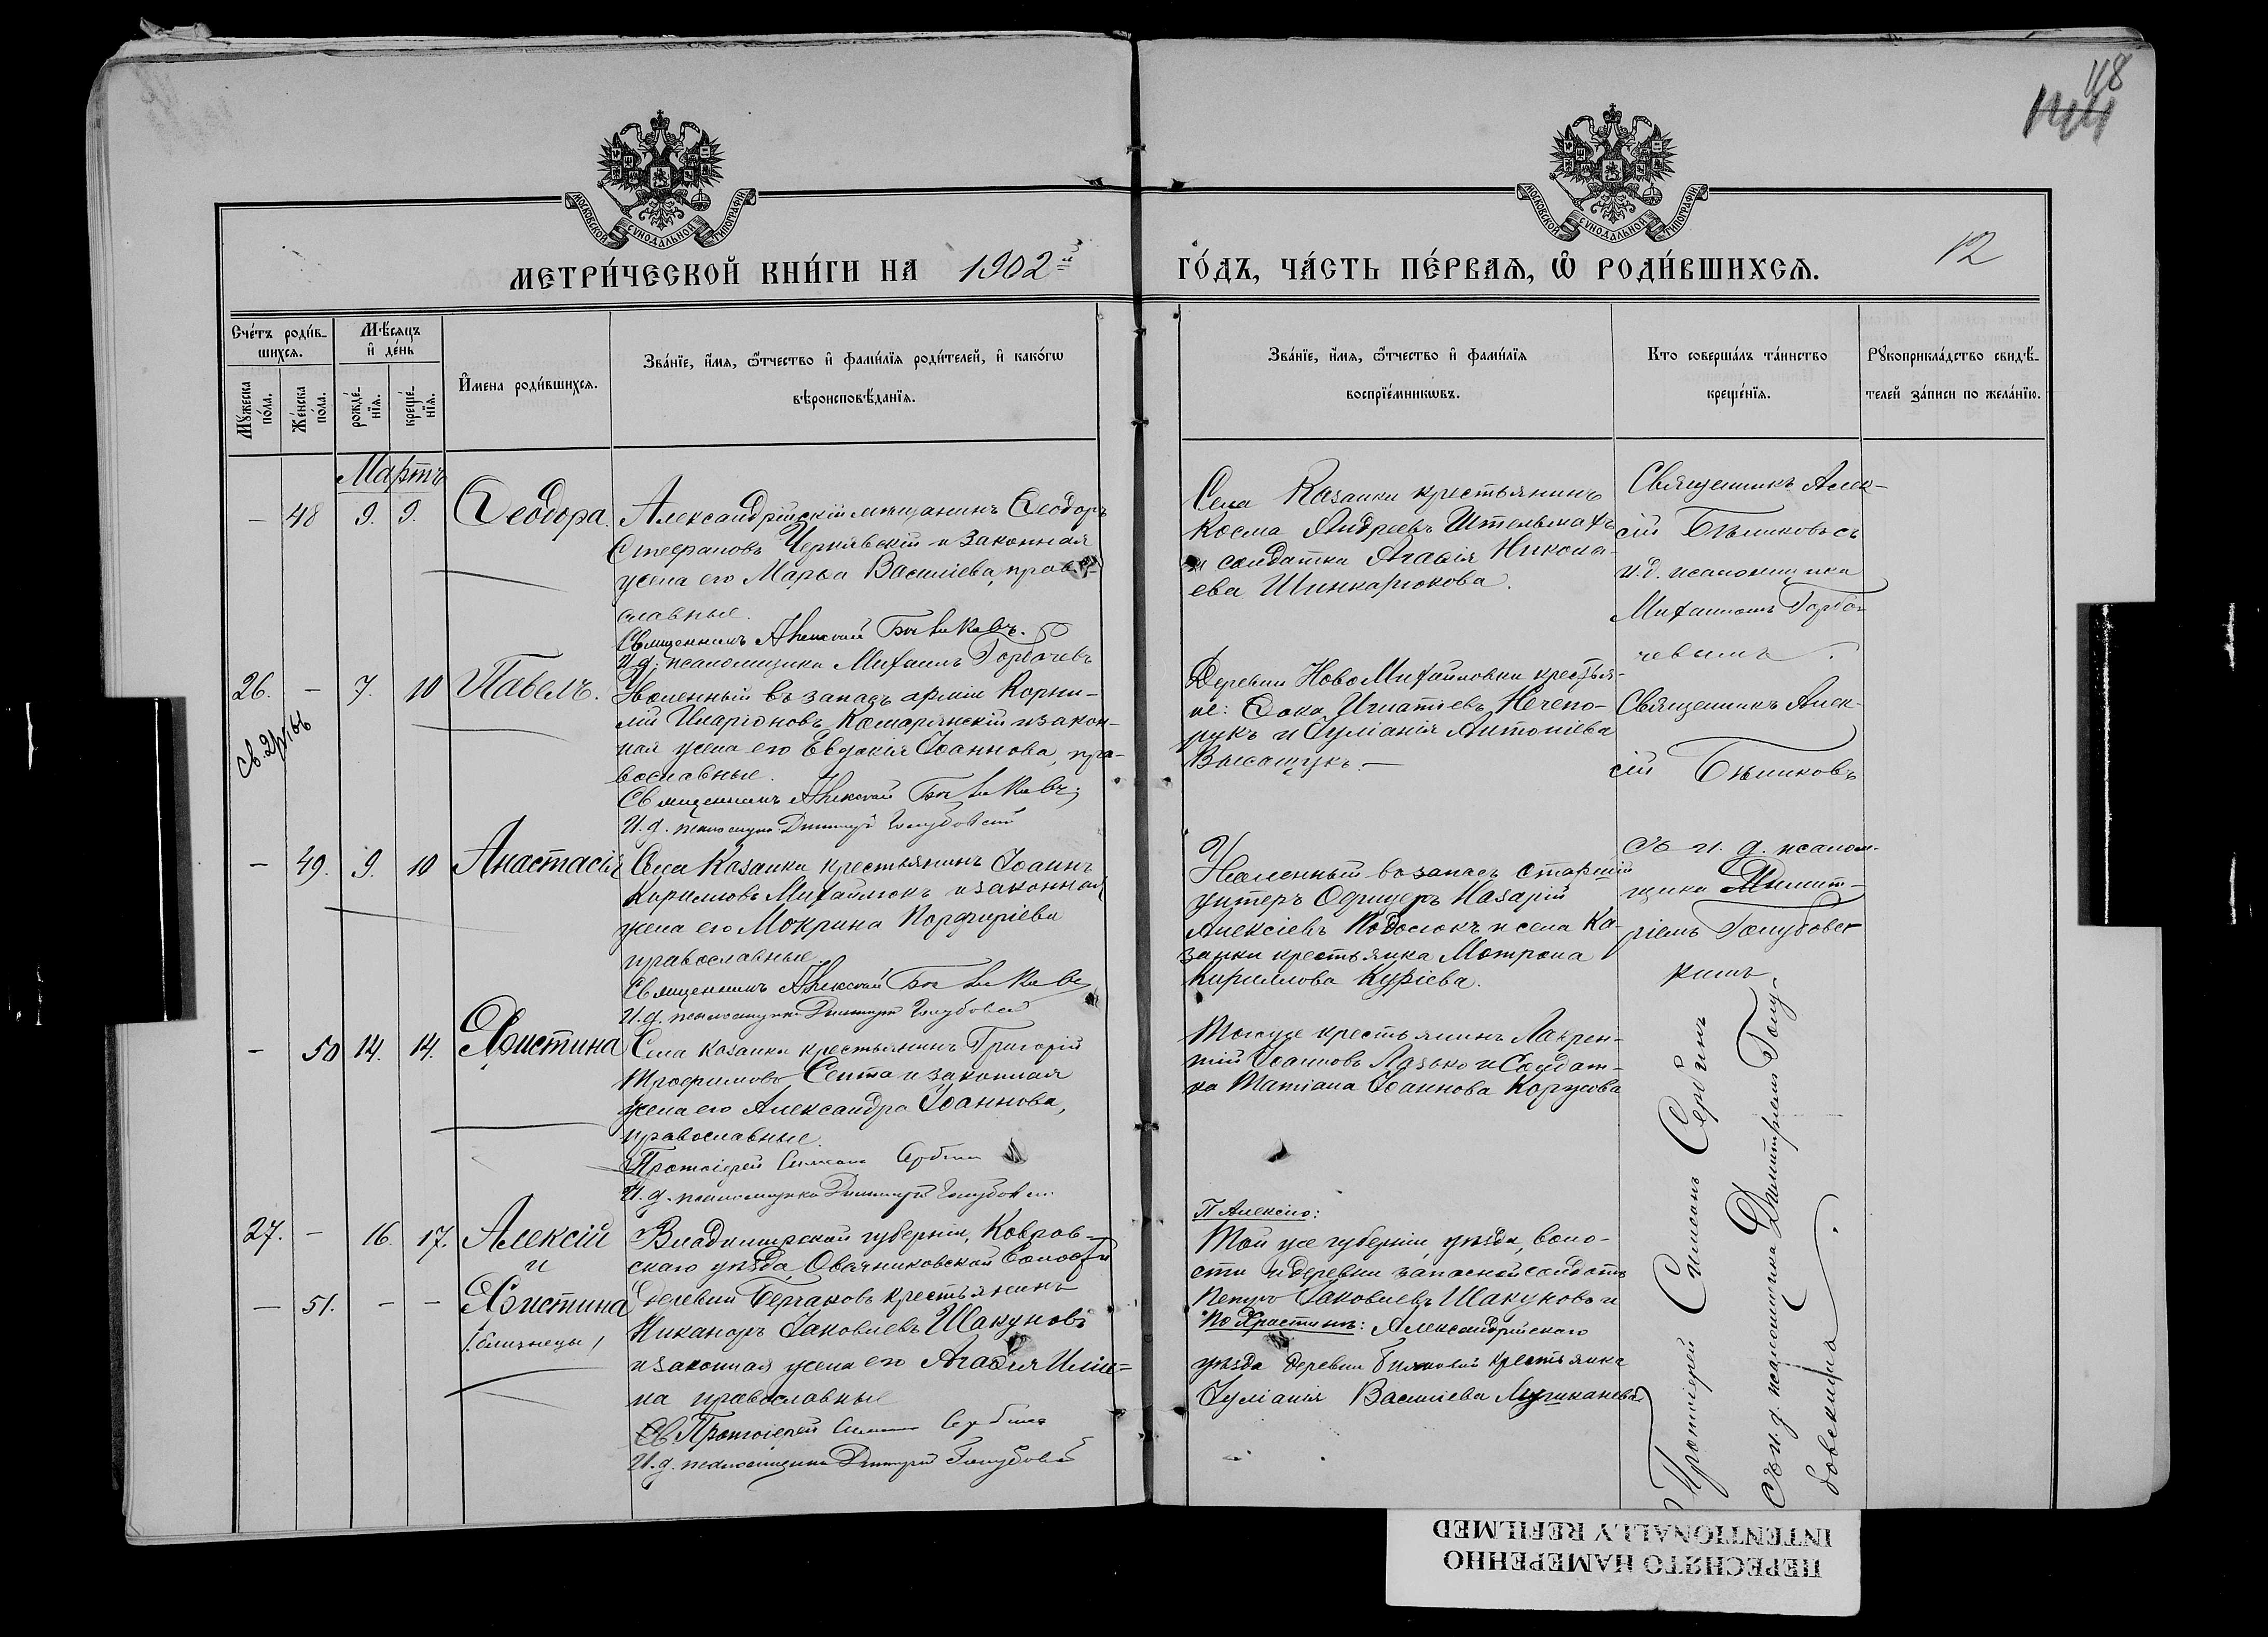 118
144
МОСКОВСКОЙ СѴНОДАЛЬНОЙ ТИПОГРАФІИ.
МОСКОВСКОЙ СѴНОДАЛЬНОЙ ТИПОГРАФІИ.
МЕТРИ́ЧЕСКОЙ КНИ́ГИ НА 1902й
ГО́ДЪ, ЧА́СТЬ ПЕ́РВАѦ, Ѽ РОДИ́ВШИХСѦ.
12
Сче́тъ роди́в-
шихсѧ.
Мѣ́сѧцъ
и҆ де́нь
Мꙋ́жеска
по́ла.
Же́нска
по́ла.
рожде́-
нїѧ.
креще́-
нїѧ.
И҆мена роди́вшихсѧ.
Зва́нїе, и҆́мѧ, ѻ҆́тчество и҆ фами́лїѧ роди́телей, и҆ како́гѡ
вѣроисповѣ́данїѧ.
Зва́нїе, и҆́мѧ, ѻ҆́тчество и҆ фами́лїѧ
воспрїе́мникѡвъ.
Кто соверша́лъ та́инство
креще́нїѧ.
Рꙋкоприкла́дство свидѣ́-
телей за́писи по жела́нїю.
Мартъ
— 48 9. 9. Ѳеодора.
Александрійскій мѣщанинъ Ѳеодоръ
Стефановъ Чернявскій и законная
жена его Марѳа Василіева, право-
славные.
Священникъ Алексій Бѣликовъ.
И.д. псаломщика Михаилъ Горбачевъ
Села Казанки крестьянинъ
Косма Андреевъ Штельмахъ
и солдатка Агаѳія Никола-
ева Шинкарюкова.
Священникъ Алек-
сій Бѣликовъ съ
и.д. псаломщика
Михаиломъ Горба-
чевымъ.
26. — 7. 10 Павелъ.
Уволенный въ запасъ арміи Корни-
лій Иларіоновъ Комарянскій и закон-
ная жена его Евдокія Іоаннова, пра-
вославные.
Священникъ Алексій Бѣликовъ
И.д. псаломщика Димитрій Голубовскій
Деревни НовоМихайловки крестья-
не: Ѳока Игнатіевъ Нечепо-
рукъ и Іуліанія Антоніева
Священникъ Алек-
сій Бѣликовъ
— 49. 9. 10 Анастасія
Села Казанки крестьянинъ Іоаннъ
Кирилловъ Михайлюкъ и законная
жена его Мокрина Порфиріева
православные.
Священникъ Алексій Бѣликовъ
И.д. псаломщика Димитрій Голубовскій
Уволенный въ запасъ старшій
унтеръ Офицеръ Назарій
Алексіевъ Подолюкъ и села Ка-
занки крестьянка Матрона
Кириллова
съ и.д. псалом-
щика Димит-
ріемъ Голубовс-
кимъ
— 50 14. 14. Христина
Села Казанки крестьянинъ Григорій
Трофимовъ Септа и законная
жена его Александра Іоаннова,
православные.
Протоіерей Симеонъ Сербинъ
И.д. псаломщика Димитрій Голубовскій
Того же крестьянинъ Лаврен-
тій Іоанновъ Лазько и Солдат-
ка Татіана Іоаннова Коржова
27. — 16. 17. Алексій
и
— 51. — — Христина
/близнецы/
Владимірской губерніи, Ковров-
скаго уѣзда, Овсяниковской Волости
деревни Берчаковъ крестьянинъ
Никаноръ Іаковлевъ Шакуновъ
и законная жена его Агаѳія Иліи-
на православные
Протоіерей Симеонъ Сербинъ
И.д. псаломщика Димитрій Голубовскій
П Алексію:
Той же губерніи, уѣзда, воло-
сти и деревни запасной солдатъ
Петръ Іаковлевъ Шакуновъ и
По Христинѣ: Александрійскаго
уѣзда деревни крестьянка
Іуліанія Василіева
Протоіерей Симеонъ Сербинъ
Съ и.д. псаломщика Димитріемъ Голу-
бовскимъ.
ПЕРЕСНЯТО НАМЕРЕННО
INTENTIONALLY REFILMED